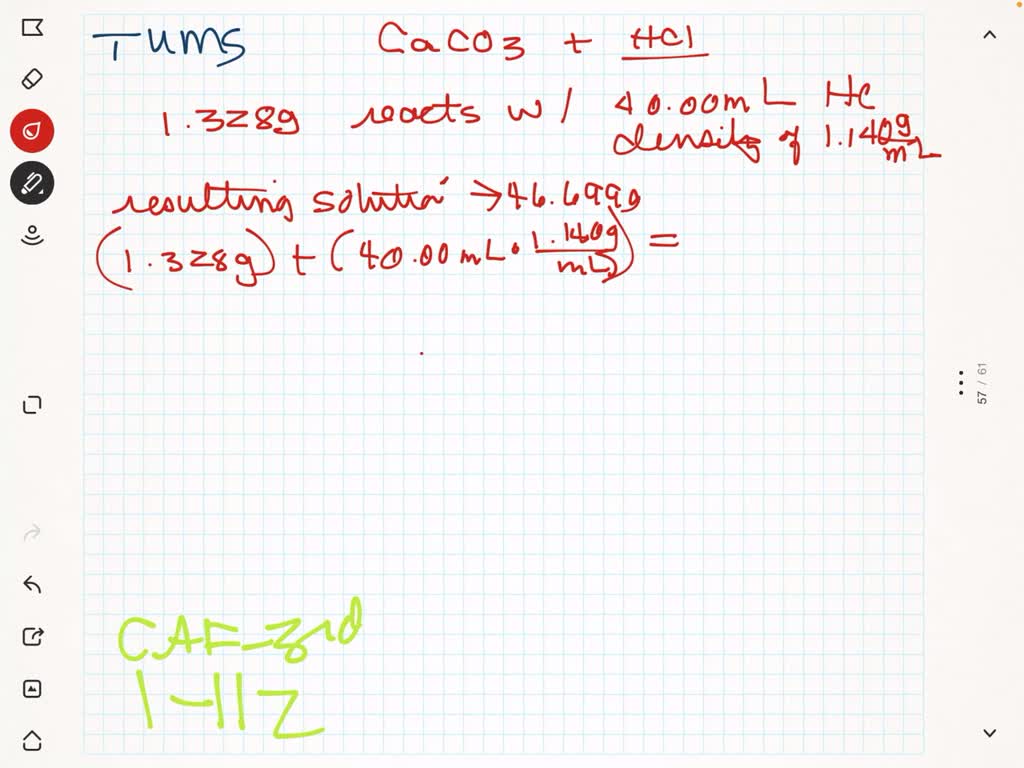 TUMS CaCO3 + HCl
1.328g reacts w/ 40.00mL HC
density of 1.140 g/mL
resulting solution → 46.699g
(1.328g) + (40.00 mL · 1.140g/mL) =
57 / 61
CAF-3rd
1-112